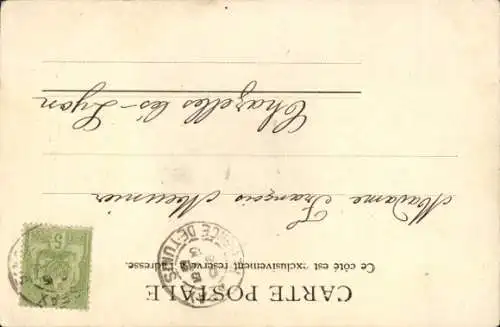 CARTE POSTALE
Ce côté est exclusivement réservé à l'adresse.
RÉGENCE DE TUNIS
SFAX
5
Madame François Meunier
Chazelles les-Lyon